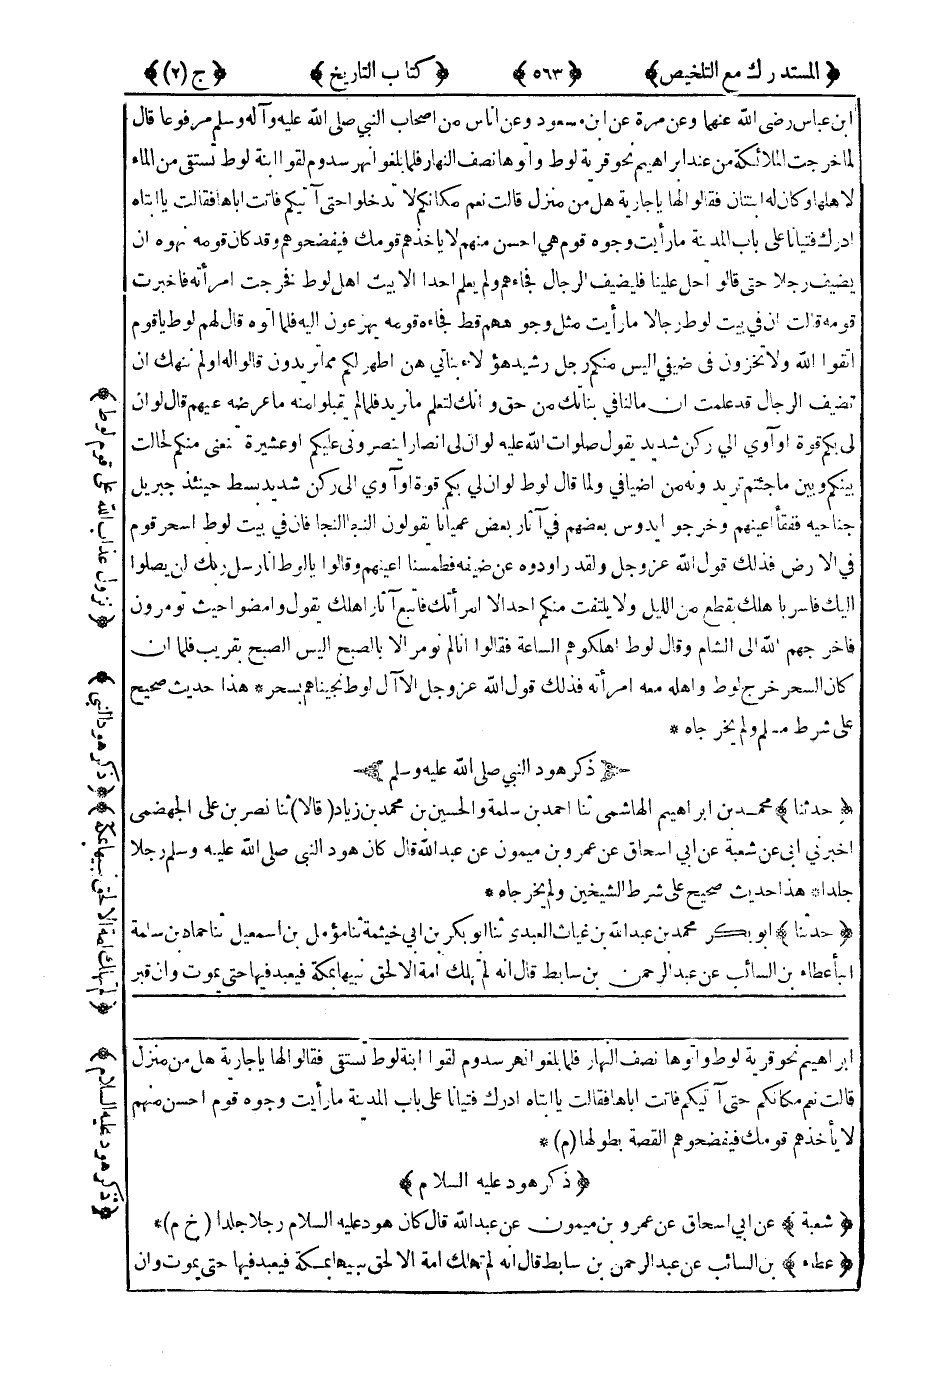 ﴿ المستدرك مع التلخيص ﴾ ﴿ ٥٦٣ ﴾ ﴿ كتاب التاريخ ﴾ ﴿ ج (٢) ﴾
ابن عباس رضى الله عنهما وعن مرة عن ابن مسعود وعن اناس من اصحاب النبي صلى الله عليه وآله وسلم مرفوعا قال
لما خرجت الملائكة من عند ابراهيم نحو قرية لوط واتوها نصف النهار فلما بلغوا نهر سدوم لقوا ابنة لوط تستقى من الماء
لاهلها وكان له ابنتان فقالوا لها يا جارية هل من منزل قالت نعم مكانكم لا تدخلوا حتى آتيكم فاتت اباها فقالت يا ابتاه
ادرك فتيانا على باب المدينة ما رأيت وجوه قوم هي احسن منهم لا ياخذهم قومك فيفضحوهم وقد كان قومه نهوه ان
يضيف رجلا حتى قالو احل علينا فليضيف الرجال فجاءهم ولم يعلم احدا الا بيت اهل لوط فخرجت امرأته فاخبرت
قومه قالت ان في بيت لوط رجالا ما رأيت مثل وجوههم قط فجاءه قومه يهرعون اليه فلما اتوه قال لهم لوط يا قوم
اتقوا الله ولا تخزون فى ضيفي اليس منكم رجل رشيد هؤلاء بناتي هن اطهر لكم مما تريدون قالوا له اولم ننهك ان
تضيف الرجال قد علمت ان ما لنا في بناتك من حق وانك لتعلم ما نريد فلما لم يقبلوا منه ما عرضه عليهم قال لو ان
لى بكم قوة او آوي الي ركن شديد يقول صلوات الله عليه لو ان لى انصارا ينصروني عليكم او عشيرة تمنعني منكم لحالت
بينكم وبين ما جئتم تريدونه من اضيافي ولما قال لوط لو ان لي بكم قوة او آوي الى ركن شديد بسط حينئذ جبريل
جناحيه ففقأ اعينهم وخرجوا يدوس بعضهم في آثار بعض عميانا يقولون النجا النجا فان في بيت لوط اسحر قوم
في الارض فذلك قول الله عز وجل ولقد راودوه عن ضيفه فطمسنا اعينهم وقالوا يا لوط انا رسل ربك لن يصلوا
اليك فاسر باهلك بقطع من الليل ولا يلتفت منكم احد الا امرأتك فاتبع آثار اهلك يقول وامضوا حيث تومرون
فاخرجهم الله الى الشام وقال لوط اهلكوهم الساعة فقالوا انا لم نومر الا بالصبح اليس الصبح بقريب فلما ان
كان السحر خرج لوط واهله معه امرأته فذلك قول الله عز وجل الا آل لوط نجيناهم بسحر * هذا حديث صحيح
على شرط مسلم ولم يخرجاه *
ذكر هود النبي صلى الله عليه وسلم
﴿ حدثنا ﴾ محمد بن ابراهيم الهاشمى ثنا احمد بن سلمة والحسين بن محمد بن زياد (قالا) ثنا نصر بن على الجهضمى
اخبرني ابى عن شعبة عن ابي اسحاق عن عمرو بن ميمون عن عبد الله قال كان هود النبي صلى الله عليه وسلم رجلا
جلدا * هذا حديث صحيح على شرط الشيخين ولم يخرجاه *
﴿ حدثنا ﴾ ابو بكر محمد بن عبد الله بن غياث العبدى ثنا ابو بكر بن ابي خيثمة ثنا مؤمل بن اسمعيل ثنا حماد بن سلمة
انبأ عطاء بن السائب عن عبد الرحمن بن سابط قال انه لم تهلك امة الا لحق نبيها بمكة فيعبد فيها حتى يموت وان قبر
ابراهيم نحو قرية لوط واتوها نصف النهار فلما بلغوا نهر سدوم لقوا ابنة لوط تستقى فقالوا لها يا جارية هل من منزل
قالت نعم مكانكم حتى آتيكم فاتت اباها فقالت يا ابتاه ادرك فتيانا على باب المدينة ما رأيت وجوه قوم احسن منهم
لا يأخذهم قومك فيفضحوهم القصة بطولها (م) *
﴿ ذكر هود عليه السلام ﴾
﴿ شعبة ﴾ عن ابي اسحاق عن عمرو بن ميمون عن عبد الله قال كان هود عليه السلام رجلا جلدا (خ م) *
﴿ عطاء ﴾ بن السائب عن عبد الرحمن بن سابط قال انه لم تهلك امة الا لحق نبيها بمكة فيعبد فيها حتى يموت وان
﴿ نزول عذاب الله على قوم لوط ﴾
﴿ ذكر هود النبي ﴾
﴿ لم تهلك امة الا لحق نبيها بمكة ﴾
﴿ ذكر هود عليه السلام ﴾